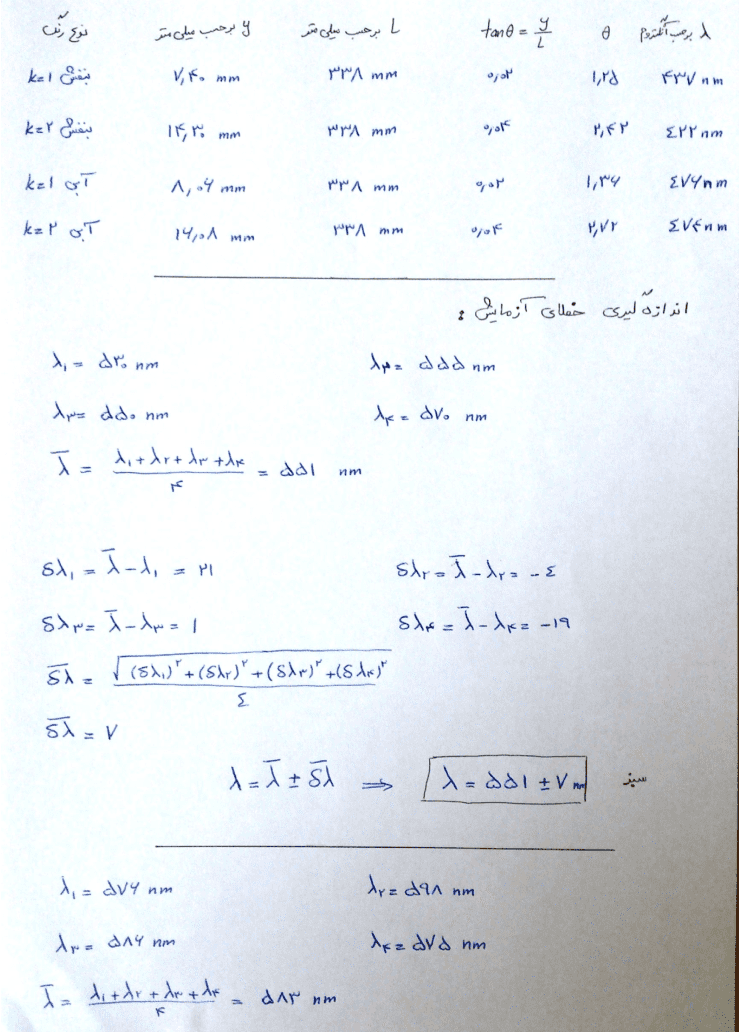 نوع رنگ y برحسب میلی متر L برحسب میلی متر tanθ = y/L θ λ برحسب آنگستروم
بنفش k=1 ۷,۴۰ mm ۳۳۸ mm ۰,۰۲ ۱,۲۵ ۴۳۷ nm
بنفش k=۲ ۱۴,۳۰ mm ۳۳۸ mm ۰,۰۴ ۲,۴۲ ٤۲۲ nm
آبی k=1 ۸,۰۶ mm ۳۳۸ mm ۰,۰۲ ۱,۳۶ ٤۷۶ nm
آبی k=۲ ۱۶,۰۸ mm ۳۳۸ mm ۰,۰۴ ۲,۷۲ ٤۷۴ nm
اندازه گیری خطای آزمایش :
λ₁ = ۵۳۰ nm λ۲ = ۵۵۵ nm
λ۳ = ۵۵۰ nm λ۴ = ۵۷۰ nm
λ̄ = (λ₁ + λ۲ + λ۳ + λ۴)/۴ = ۵۵۱ nm
δλ₁ = λ̄ - λ₁ = ۲۱ δλ۲ = λ̄ - λ۲ = -٤
δλ۳ = λ̄ - λ۳ = ۱ δλ۴ = λ̄ - λ۴ = -۱۹
δ̄λ = √((δλ₁)^۲ + (δλ۲)^۲ + (δλ۳)^۲ + (δλ۴)^۲)/٤
δ̄λ = ۷
λ = λ̄ ± δ̄λ ⇒ λ = ۵۵۱ ± ۷ nm سبز
λ₁ = ۵۷۶ nm λ۲ = ۵۹۸ nm
λ۳ = ۵۸۶ nm λ۴ = ۵۷۵ nm
λ̄ = (λ₁ + λ۲ + λ۳ + λ۴)/۴ = ۵۸۳ nm